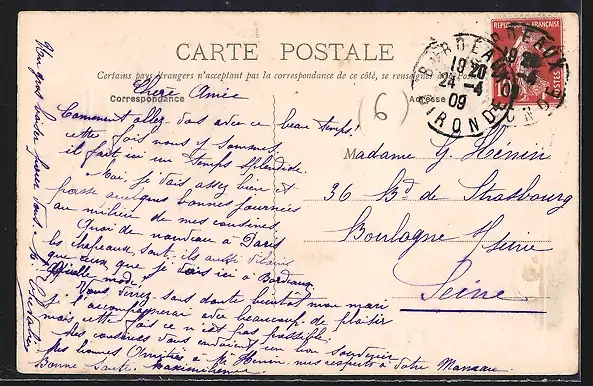 CARTE POSTALE
Certains pays étrangers n'acceptant pas la correspondance de ce côté, se renseigner
Correspondance
Adresse
BORDEAUX
19 20
24 -4
09
GIRONDE
RÉPUBLIQUE FRANÇAISE
10
POSTES
(6)
Chère Amie
Comment allez-vous avec ce beau temps!
cette fois nous y sommes,
il fait ici un temps splendide.
Moi je vais assez bien et
passe quelques bonnes journées
au milieu de mes cousines.
Quoi de nouveau à Paris
les chapeaux sont-ils aussi vilains
que ceux que je vois ici à Bordeaux,
quelle mode!
Vous verrez sans doute bientôt mon mari
je l'accompagnerai avec beaucoup de plaisir
mais cette fois ce n'est pas possible.
Mes cousines vous envoient un bon souvenir
Mes bonnes Amitiés à Mr Hénin mes respects à Votre Maman.
Bonne Santé. Maximilienne
Un gros baiser pour vous.
Madame G. Hénin
36 Bd de Strasbourg
Boulogne s/ Seine
Seine